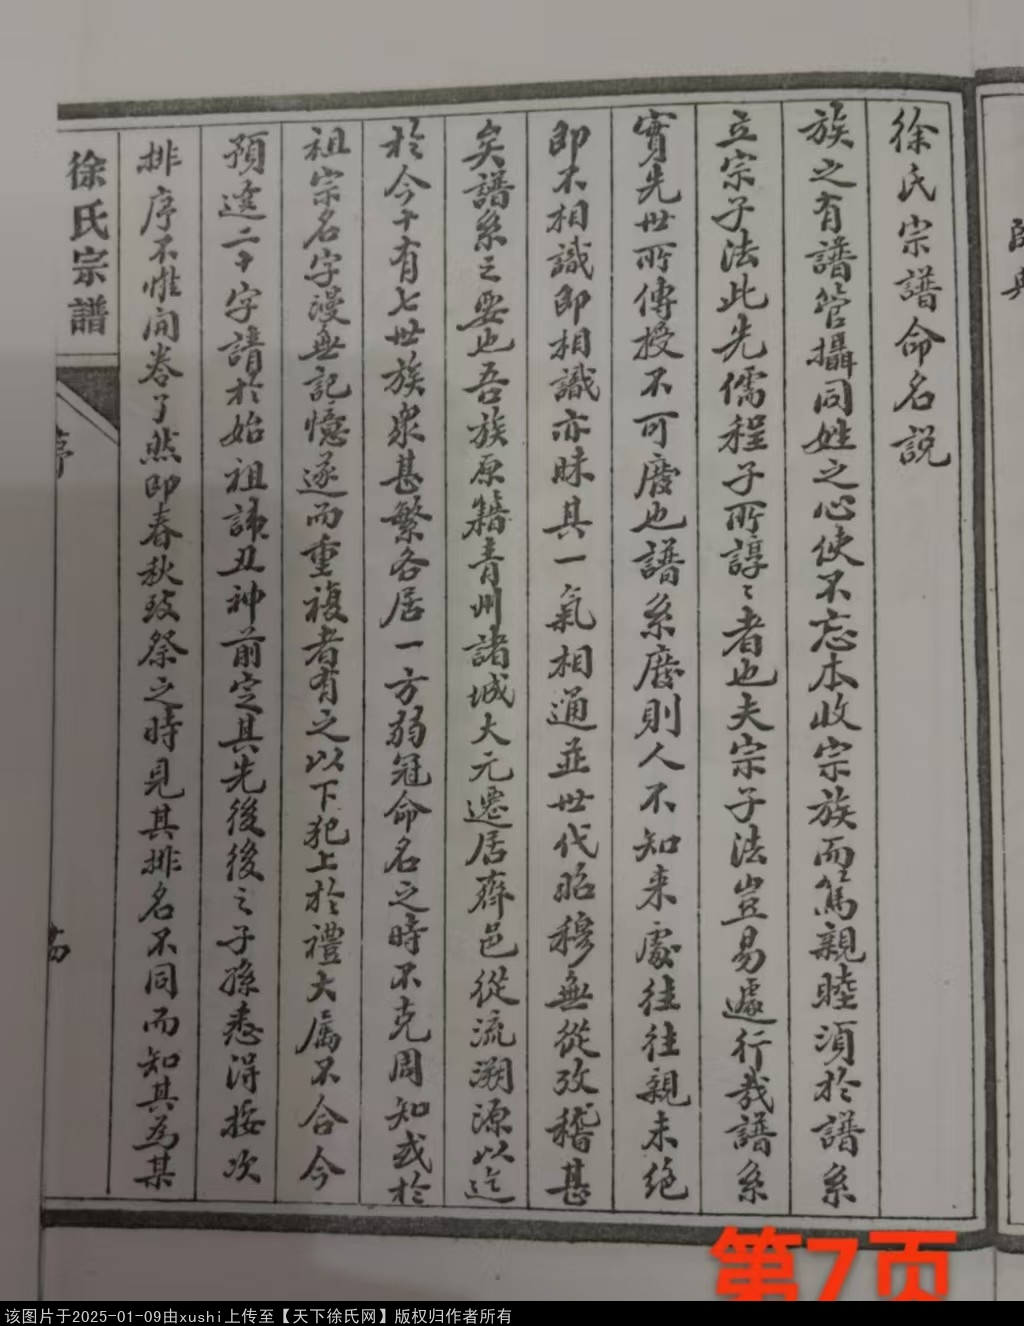 徐氏宗譜命名説
族之有譜管攝同姓之心使不忘本收宗族而篤親睦須於譜系
立宗子法此先儒程子所諄〻者也夫宗子法豈易遽行哉譜系
實先世所傳授不可廢也譜系廢則人不知来處往往親未絶
即不相識即相識亦昧其一氣相通並世代昭穆無從攷稽甚
矣譜系之要也吾族原籍青州諸城大元遷居齊邑從流溯源以迄
於今十有七世族衆甚繁各居一方弱冠命名之時不克周知或於
祖宗名字漫無記憶遂而重複者有之以下犯上於禮大屬不合今
預遴二十字請於始祖諱丑神前定其先後後之子孫悉得挨次
排序不惟開卷了然即春秋致祭之時見其排名不同而知其為某
徐氏宗譜
序
第7页
该图片于2025-01-09由xushi上传至【天下徐氏网】版权归作者所有